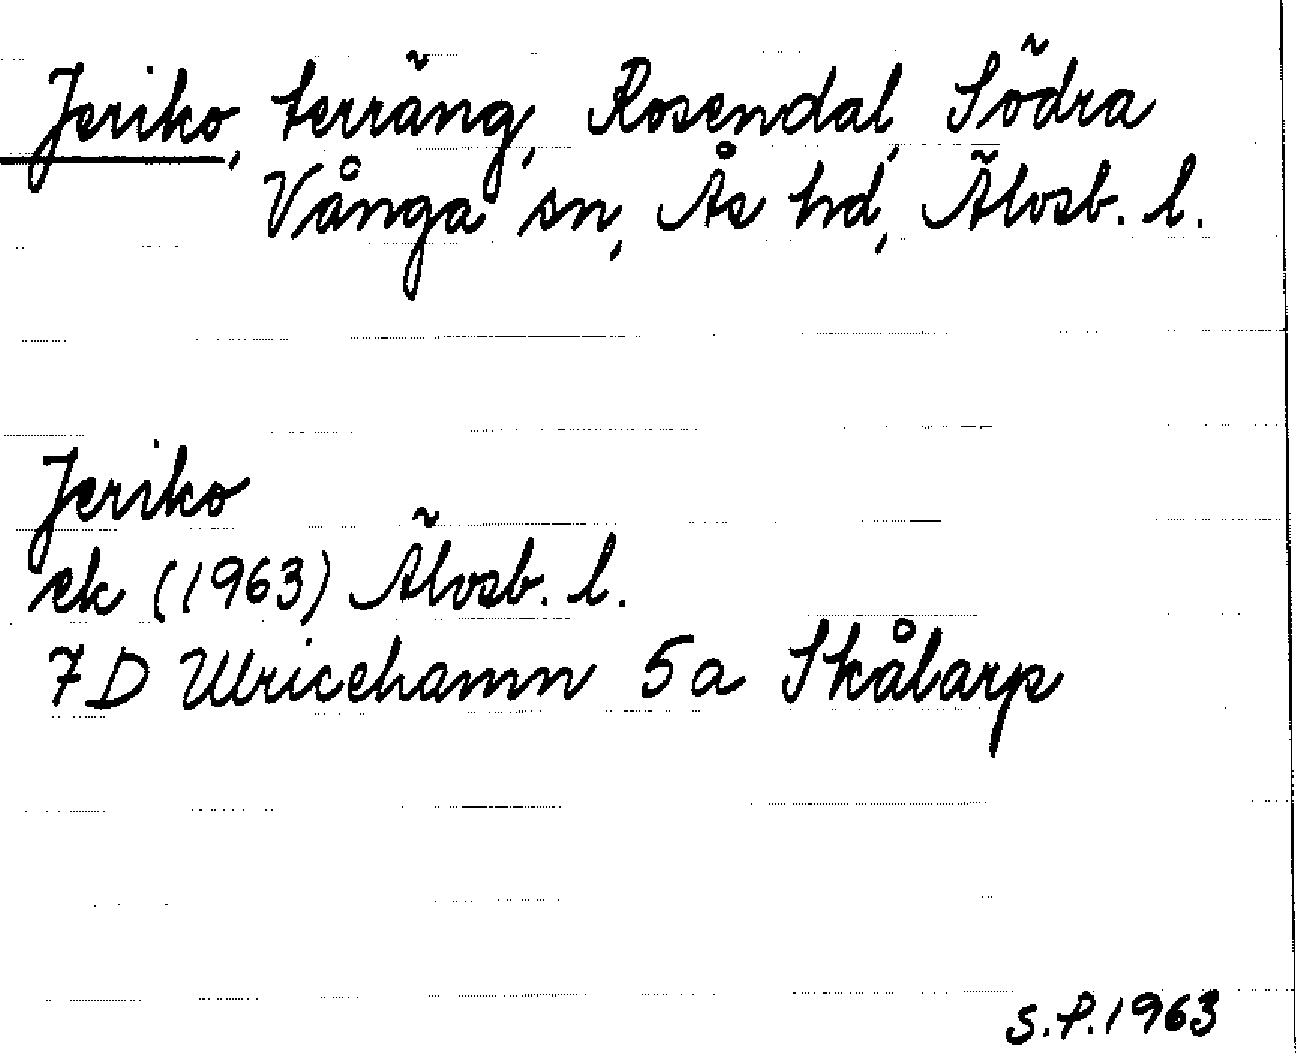 Jeriko, terräng, Rosendal, Södra
Vånga sn, Ås hd, Älvsb. l.
Jeriko
ek (1963) Älvsb. l.
7 D Ulricehamn 5 a Skålarp
S.P. 1963